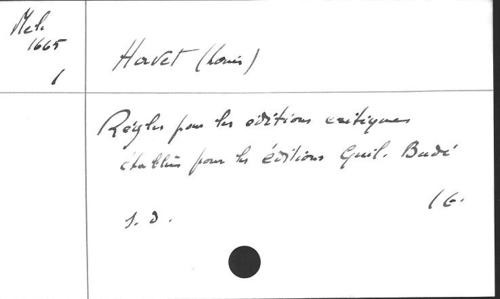 Mel.
1665
1
Havet (Louis)
Règles pour les éditions critiques
établies pour les éditions Guil. Budé
s.d.
16.